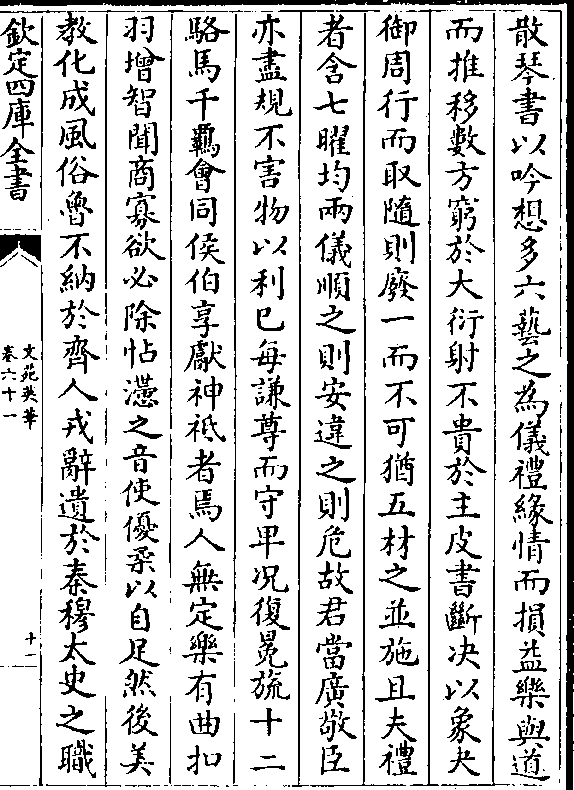 散琴書以吟想多六藝之為儀禮緣情而損益樂與道
而推移數方窮於大衍射不貴於主皮書斷決以象夬
御周行而取隨則廢一而不可猶五材之並施且夫禮
者含七曜均兩儀順之則安違之則危故君當廣敬臣
亦盡規不害物以利已每謙尊而守卑况復冕旒十二
駱馬千羈會同侯伯享獻神祗者焉人無定樂有曲扣
羽增智聞商寡欲必除怗懘之音使優柔以自足然後美
教化成風俗魯不納於齊人戎辭遺於秦穆太史之職
欽定四庫全書
文苑英華
卷六十一
十一